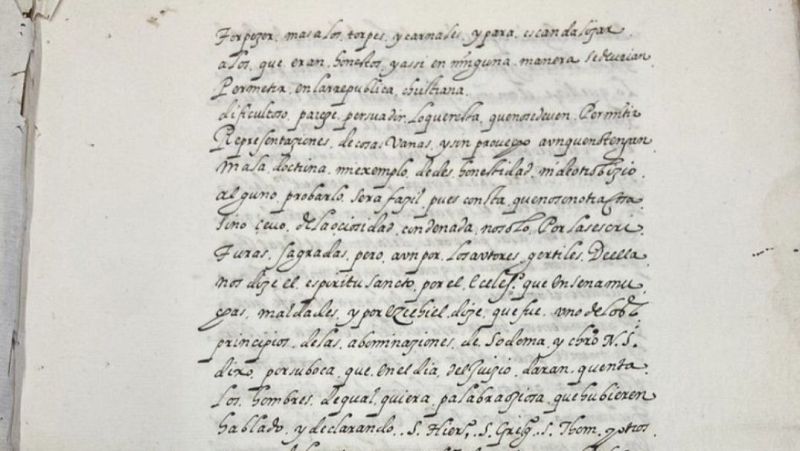 Torpezer, mas a los, torpes, y carnales, y para, escandalizar
a los, que, eran, honestos, y assi en ninguna, manera, se deurian
Permetir, en la rrepublica, christiana.
dificultoso, pareze, persuadir, lo que resta, que no se deuen, Permitir
Representaziones, de cosas Vanas, y sin prouecho aunque no tengan
mala, doctrina, ni exemplo, de des honestidad, ni de otro bizio
alguno, probarlo, sera fazil, pues consta, que no es otra cosa
sino, çeuo, de la ociosidad, condenada, no solo, Por las escri
Turas, sagradas, pero, aun por, los autores, gentiles, De ella
nos dize el, espiritu sancto, por el, Ecclesº, que Ensena mu
chas, maldades, y por Ezechiel dize, que fue, uno de los
principios, de las, abominaziones, de, Sodoma, y chro N. S.
dixo, por su boca, que, En el dia, del Juizio, daran, quenta
Los, hombres, De qual, quiera, palabra ociosa, que hubieren
hablado, y declarando, S. Hierº, S. Greg. S. Thom. y otros